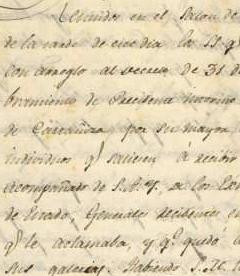 Reunidos en el Salon de
de la tarde de este dia los SS q
con arreglo al decreto de 31 d
bramiento de Presidente interino
de Carranza por su mayor
individuos qe saliesen á recibir
acompañado de S.A.Y. a los Ex
de Estado, Generales
qe le aclamaba, y qe quedó á
sus galerias. Habiendo S.M.